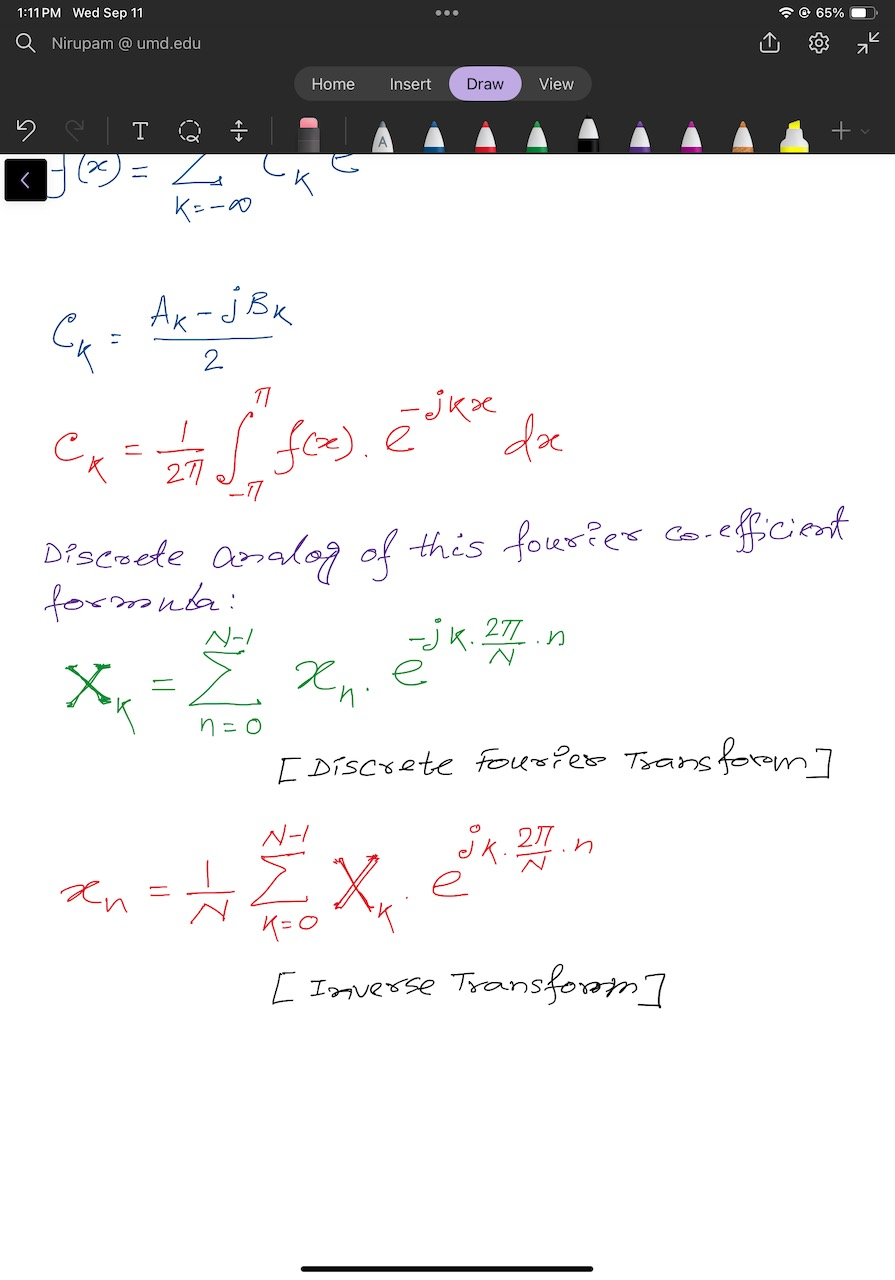 1:11 PM Wed Sep 11
65%
Nirupam @ umd.edu
Home Insert Draw View
T
A
f(x) = Σ_{K=-∞} C_K e
C_K = (A_K - jB_K) / 2
C_K = 1/2π ∫_{-π}^{π} f(x). e^{-jKx} dx
Discrete analog of this fourier co-efficient
formula:
X_K = Σ_{n=0}^{N-1} x_n. e^{-jK. 2π/N . n}
[Discrete Fourier Transform]
x_n = 1/N Σ_{K=0}^{N-1} X_K. e^{jK. 2π/N . n}
[Inverse Transform]